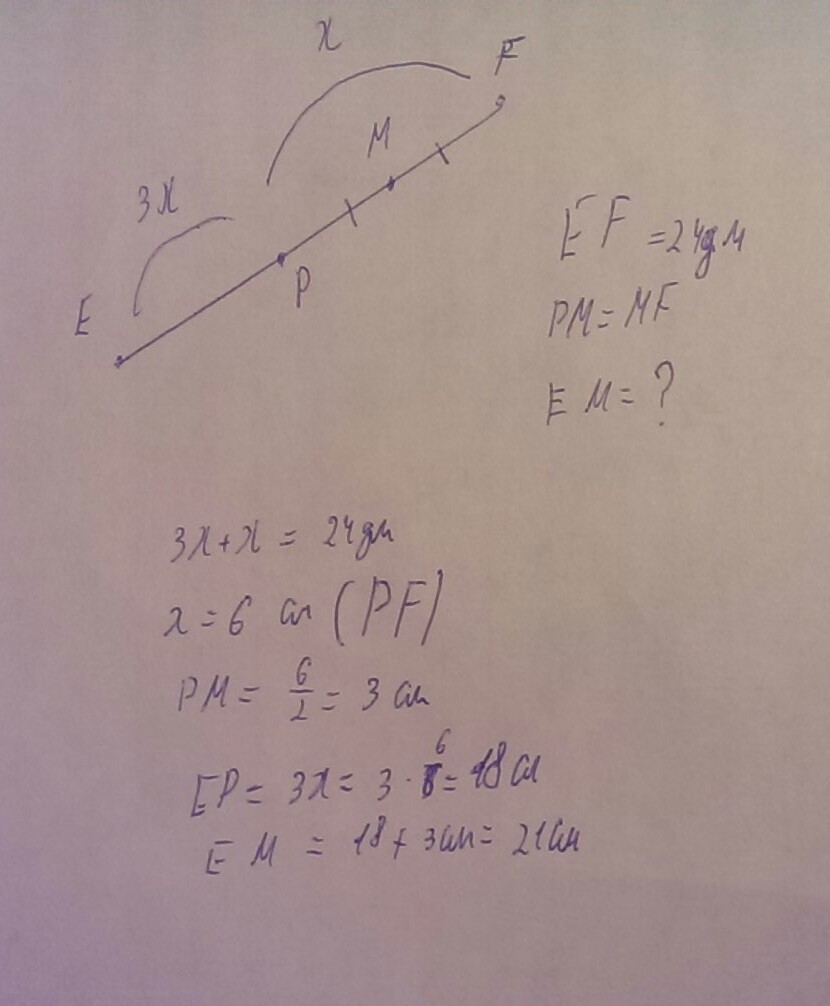 x
F
M
3x
P
E
EF = 24дм
PM = MF
EM = ?
3x + x = 24дм
x = 6 см (PF)
PM = 6/2 = 3 см
EP = 3x = 3 · 6 = 18 см
EM = 18 + 3см = 21см